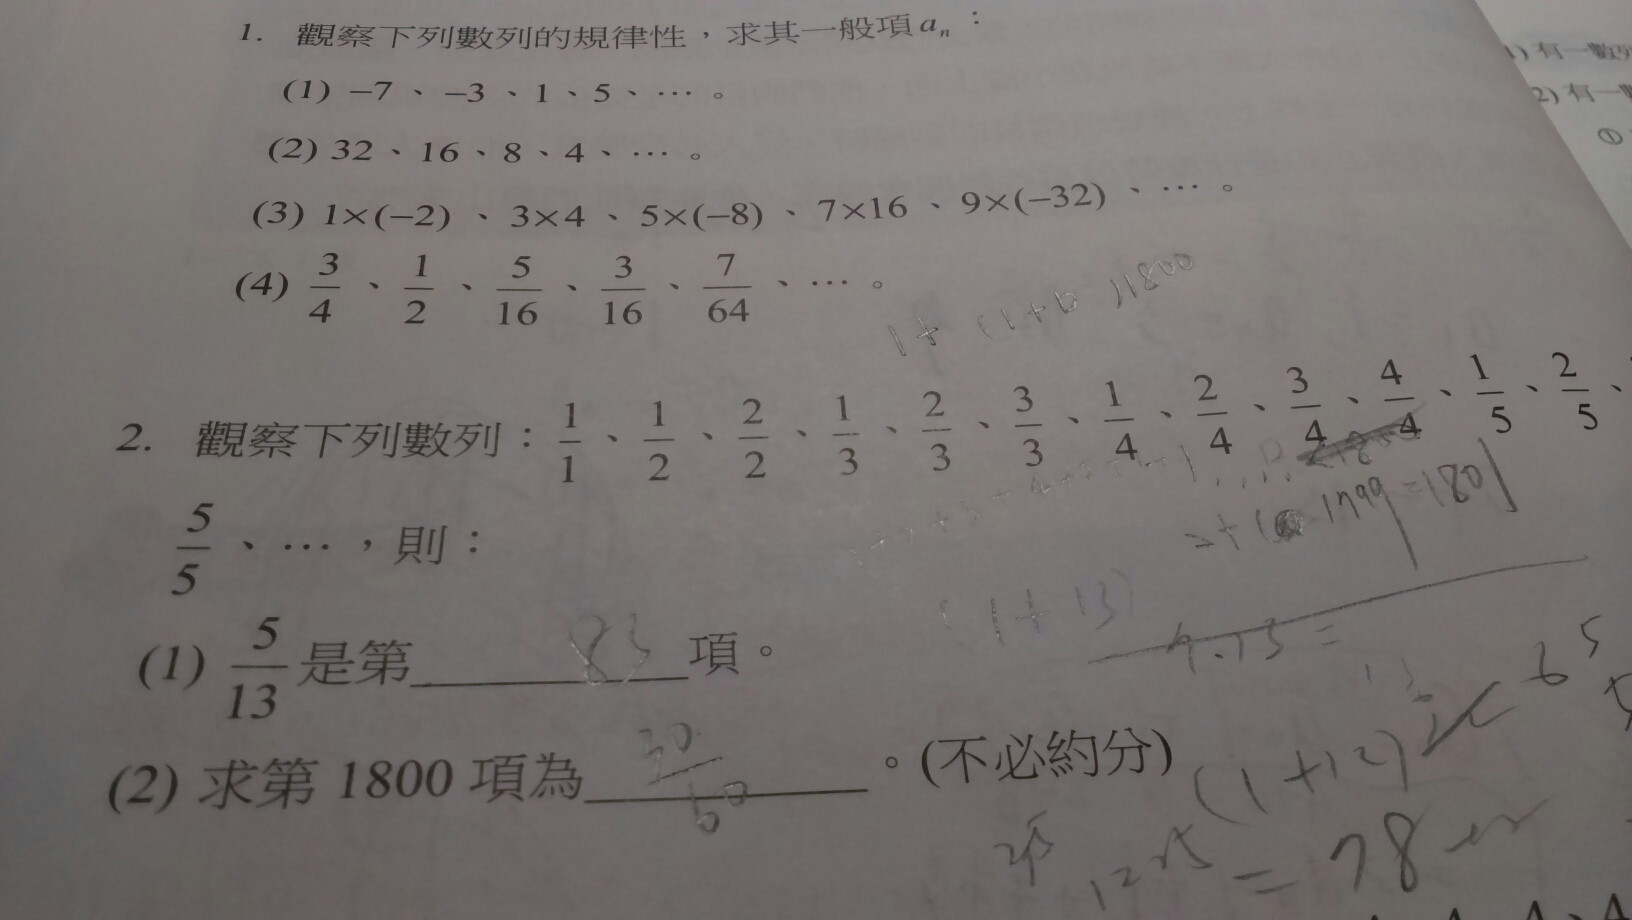 1. 觀察下列數列的規律性，求其一般項 aₙ：
(1) −7、−3、1、5、⋯。
(2) 32、16、8、4、⋯。
(3) 1×(−2)、3×4、5×(−8)、7×16、9×(−32)、⋯。
(4) 3/4、1/2、5/16、3/16、7/64、⋯。
1+(1+ )1800
2. 觀察下列數列：1/1、1/2、2/2、1/3、2/3、3/3、1/4、2/4、3/4、4/4、1/5、2/5、
1799=1801
5/5、⋯，則：
(1+13)
(1) 5/13是第 83 項。
(2) 求第 1800 項為 30/60。(不必約分)
(1+12)
=78
1) 有一數列
2) 有一
①